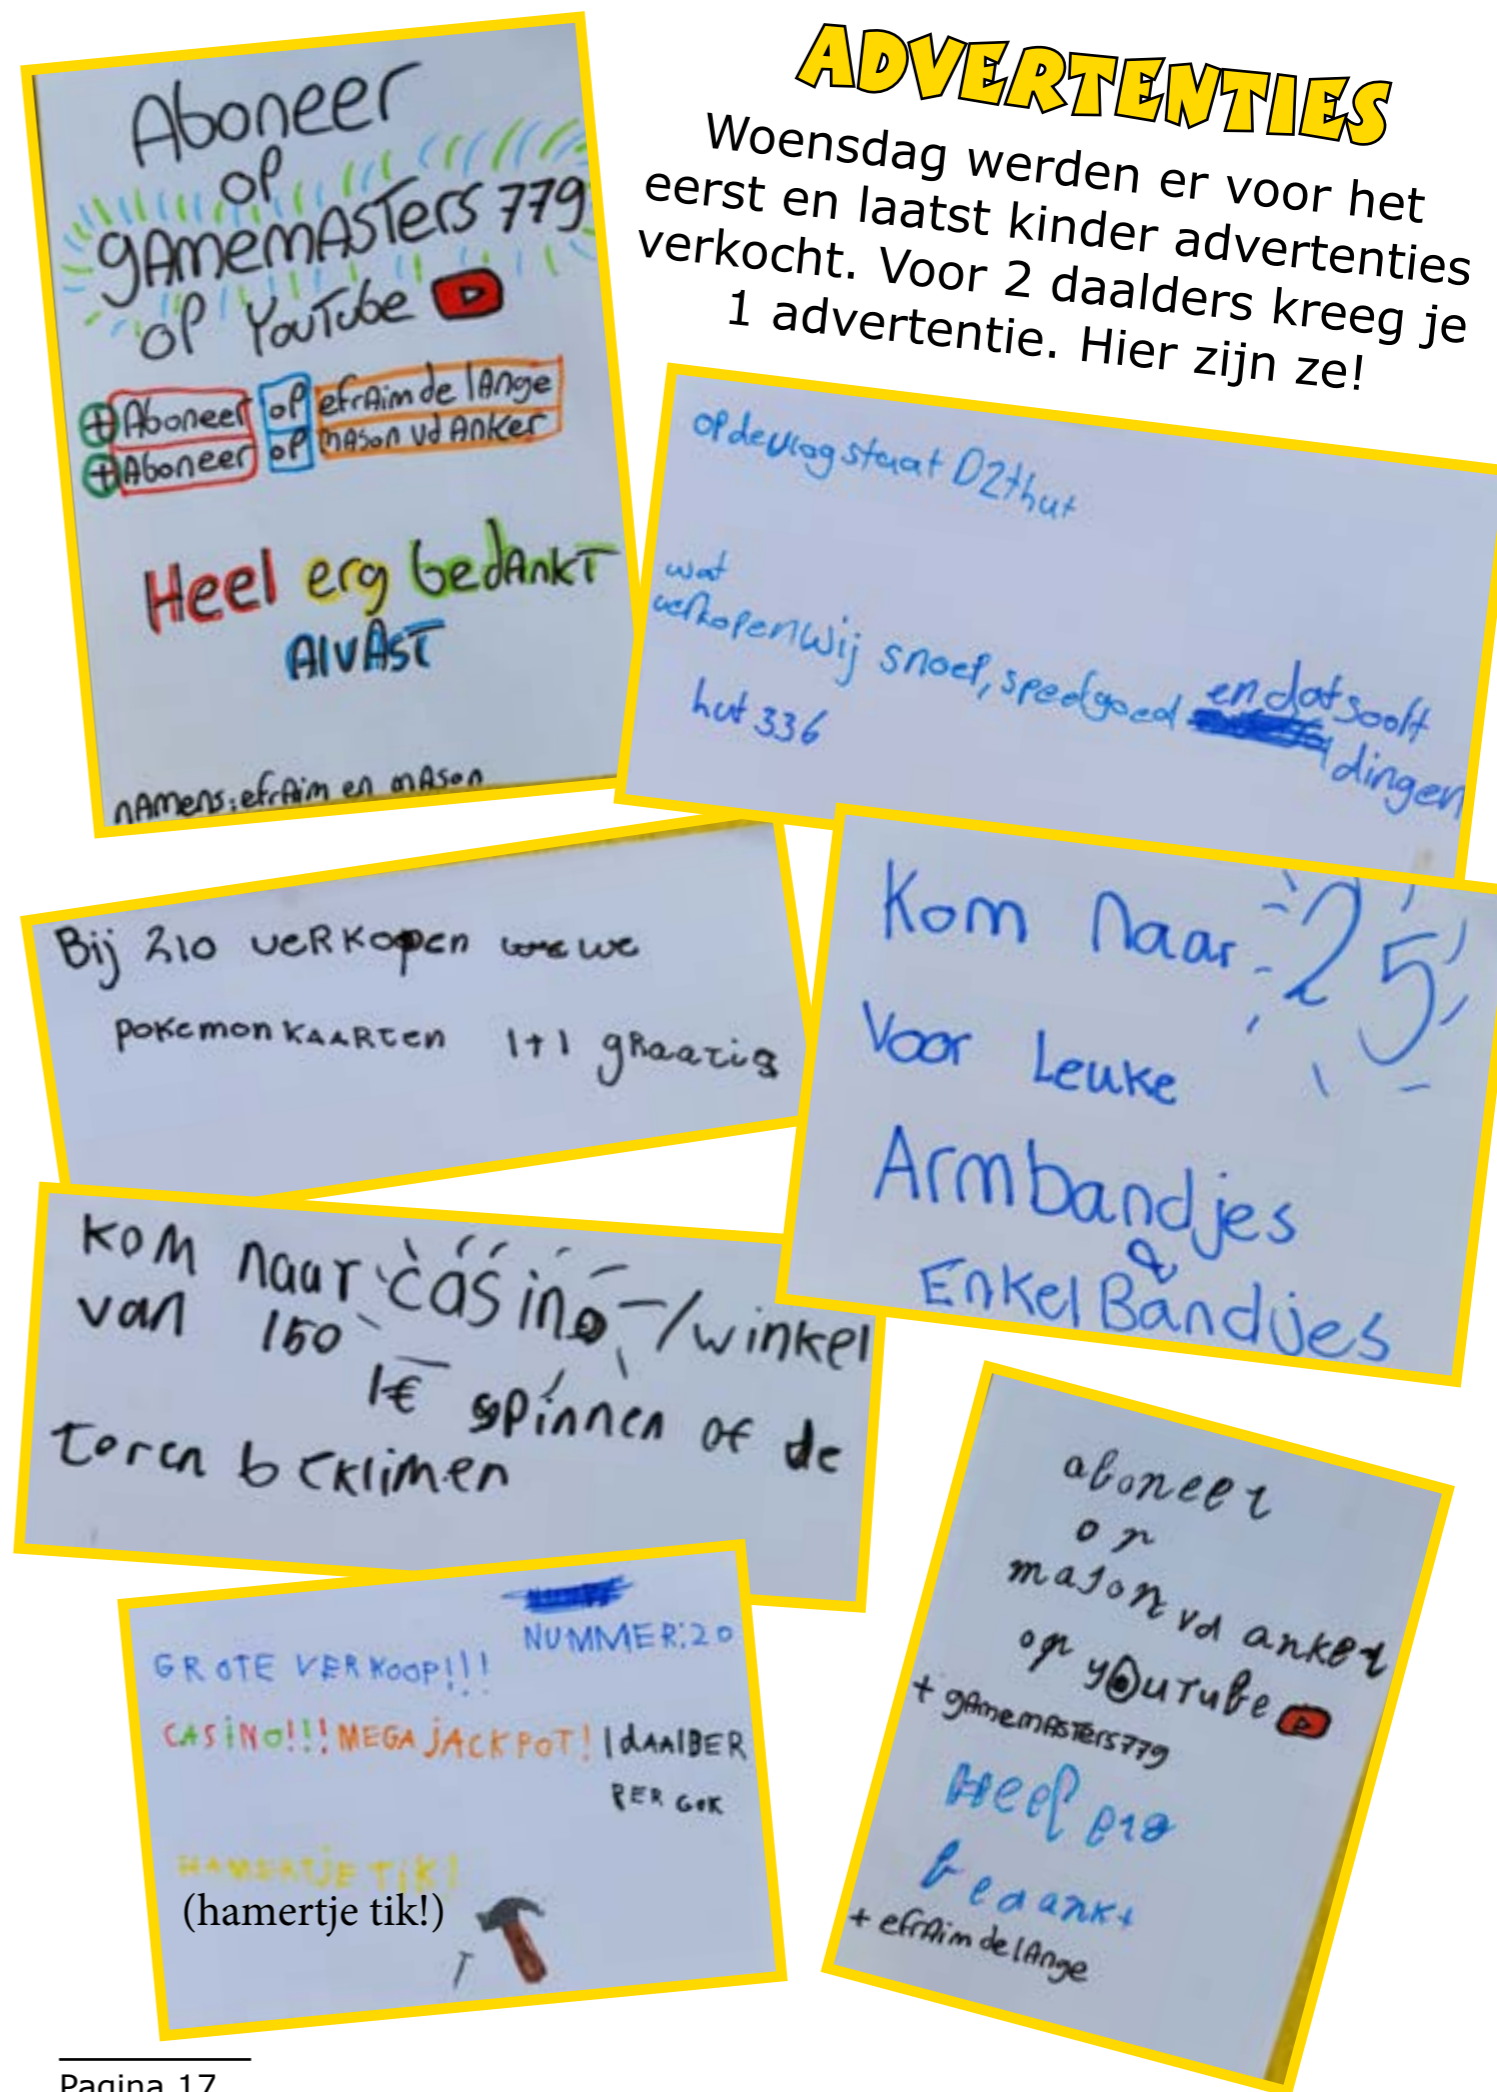 ADVERTENTIES
Woensdag werden er voor het
eerst en laatst kinder advertenties
verkocht. Voor 2 daalders kreeg je
1 advertentie. Hier zijn ze!
Aboneer
op
gAmemASTerS 779
op YouTube
+ Aboneer op efrAim de lAnge
+ Aboneer op mAson vd Anker
Heel erg bedAnkT
AlvAsT
nAmens: efrAim en mAson
op de vlag staat D2thut
wat
verkopen wij snoep, speelgoed en dat soort
dingen
hut 336
Bij 210 veRKopen we we
poKemon KAARTen 1+1 gRaatis
Kom Naar 25
Voor Leuke
Armbandjes
&
Enkel Bandjes
KOM naar casino /winkel
van 150
1€ spinnen of de
toren beklimen
NUMMER:20
GROTE VERKOOP!!!
CASINO!!! MEGA JACKPOT! 1 dAAlDER
PER GOK
HAMERTJE TIK!
(hamertje tik!)
aboneer
op
mason vd anker
op youTube
+ gAmemAsTers779
Heel erg
bedankt
+ efrAim de lAnge
Pagina 17